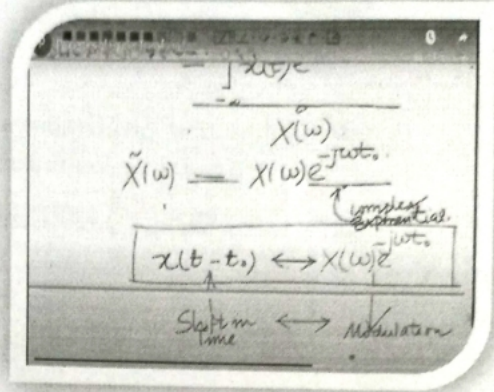 = ∫ x(t) e
-∞
X(ω)
X̃(ω) = X(ω) e^{-jωt₀}
complex
Exponential.
x(t-t₀) ↔ X(ω) e^{-jωt₀}
Shift in ↔ Modulation
time